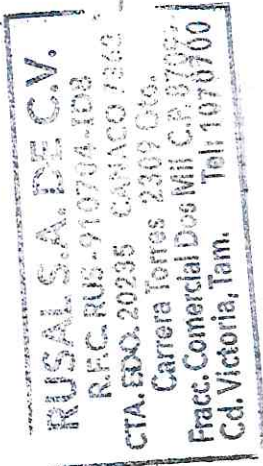 RUSAL S.A. DE C.V.
R.F.C. RUS-910704-
CTA. EDO. 20235
Carrera Torres 2309 Cte.
Fracc. Comercial Dos Mil C.P.
Cd. Victoria, Tam. Tel: 1070700